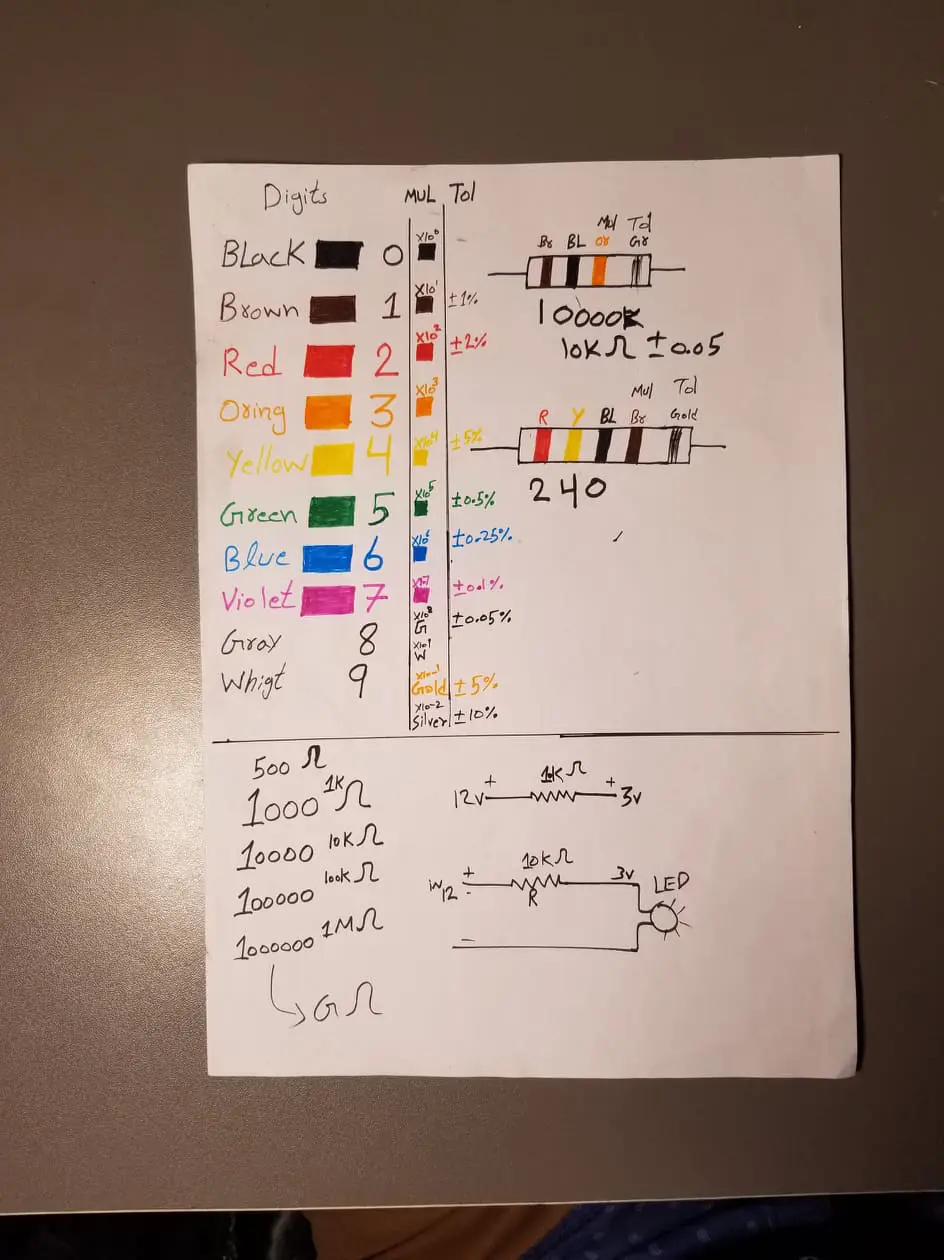 Digits MUL Tol
BLacK 0 X10⁰
Brown 1 X10¹ ±1%
Red 2 X10² ±2%
Oring 3 X10³
Yellow 4 X10⁴ ±5%
Green 5 X10⁵ ±0.5%
Blue 6 X10⁶ ±0.25%
Violet 7 X10⁷ ±0.1%
Gray 8 X10⁸ G ±0.05%
Whigt 9 X10⁹ W
X10⁻¹ Gold ±5%
X10⁻² Silver ±10%
Mul Tol
Br BL Or Gr
10000K
10KΩ ±0.05
Mul Tol
R Y BL Br Gold
240
500 Ω
1000 1KΩ
10000 10KΩ
100000 100KΩ
1000000 1MΩ
GΩ
10KΩ
12v + + 3v
10KΩ
in 12 + - R 3v LED
-